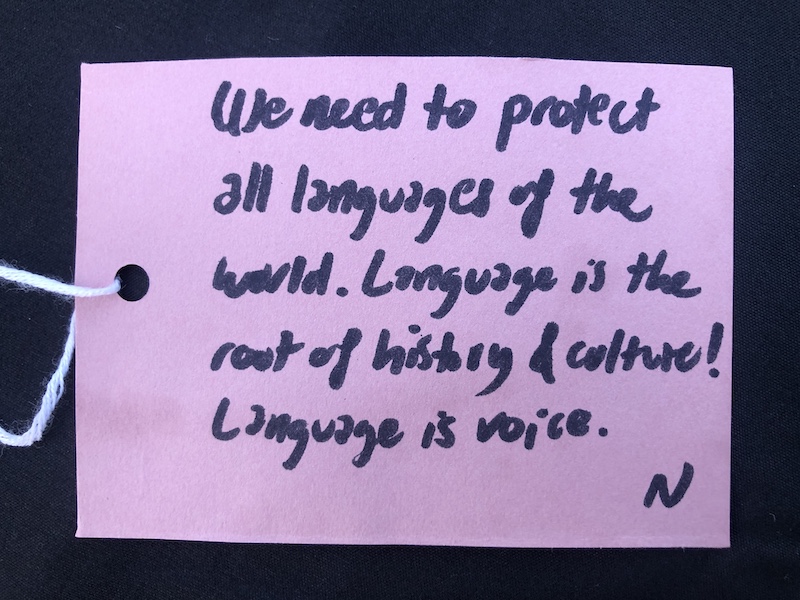 We need to protect
all languages of the
world. Language is the
root of history & culture!
Language is voice.
N